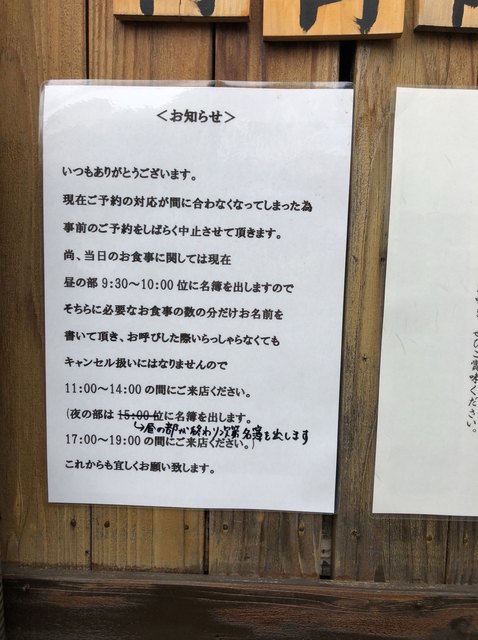 ＜お知らせ＞
いつもありがとうございます。
現在ご予約の対応が間に合わなくなってしまった為
事前のご予約をしばらく中止させて頂きます。
尚、当日のお食事に関しては現在
昼の部 9:30～10:00 位に名簿を出しますので
そちらに必要なお食事の数の分だけお名前を
書いて頂き、お呼びした際いらっしゃらなくても
キャンセル扱いにはなりませんので
11:00～14:00 の間にご来店ください。
(夜の部は 15:00 位に名簿を出します。
↳昼の部が終わり次第名簿を出します
17:00～19:00 の間にご来店ください。)
これからも宜しくお願い致します。
ください。